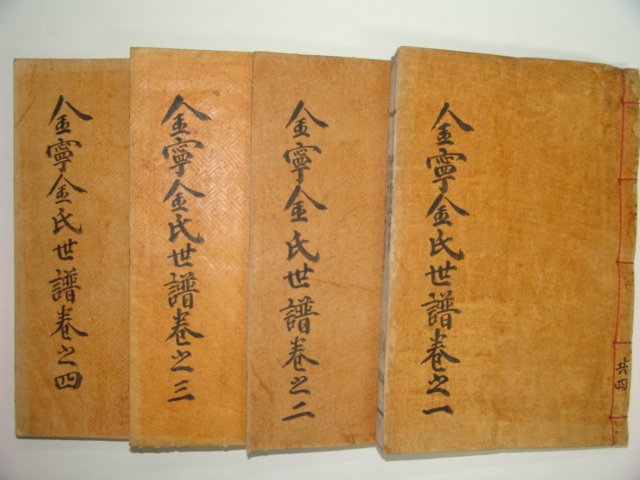 金寧金氏世譜卷之一
共四
金寧金氏世譜卷之二
金寧金氏世譜卷之三
金寧金氏世譜卷之四